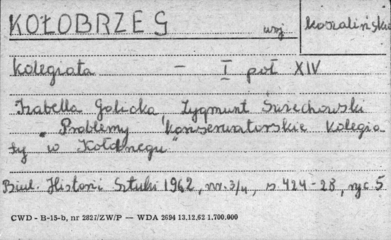 KOŁOBRZEG woj. koszalińskie
Kolegiata - I poł XIV
Izabella Galicka, Zygmunt Świechowski
„Problemy konserwatorskie kolegia
ty w Kołobrzegu"
Biul. Historii Sztuki 1962, nr. 3/4, s 424-28, ryc. 5
CWD - B-15-b, nr 2827/ZW/P — WDA 2694 13.12.62 1.700.000